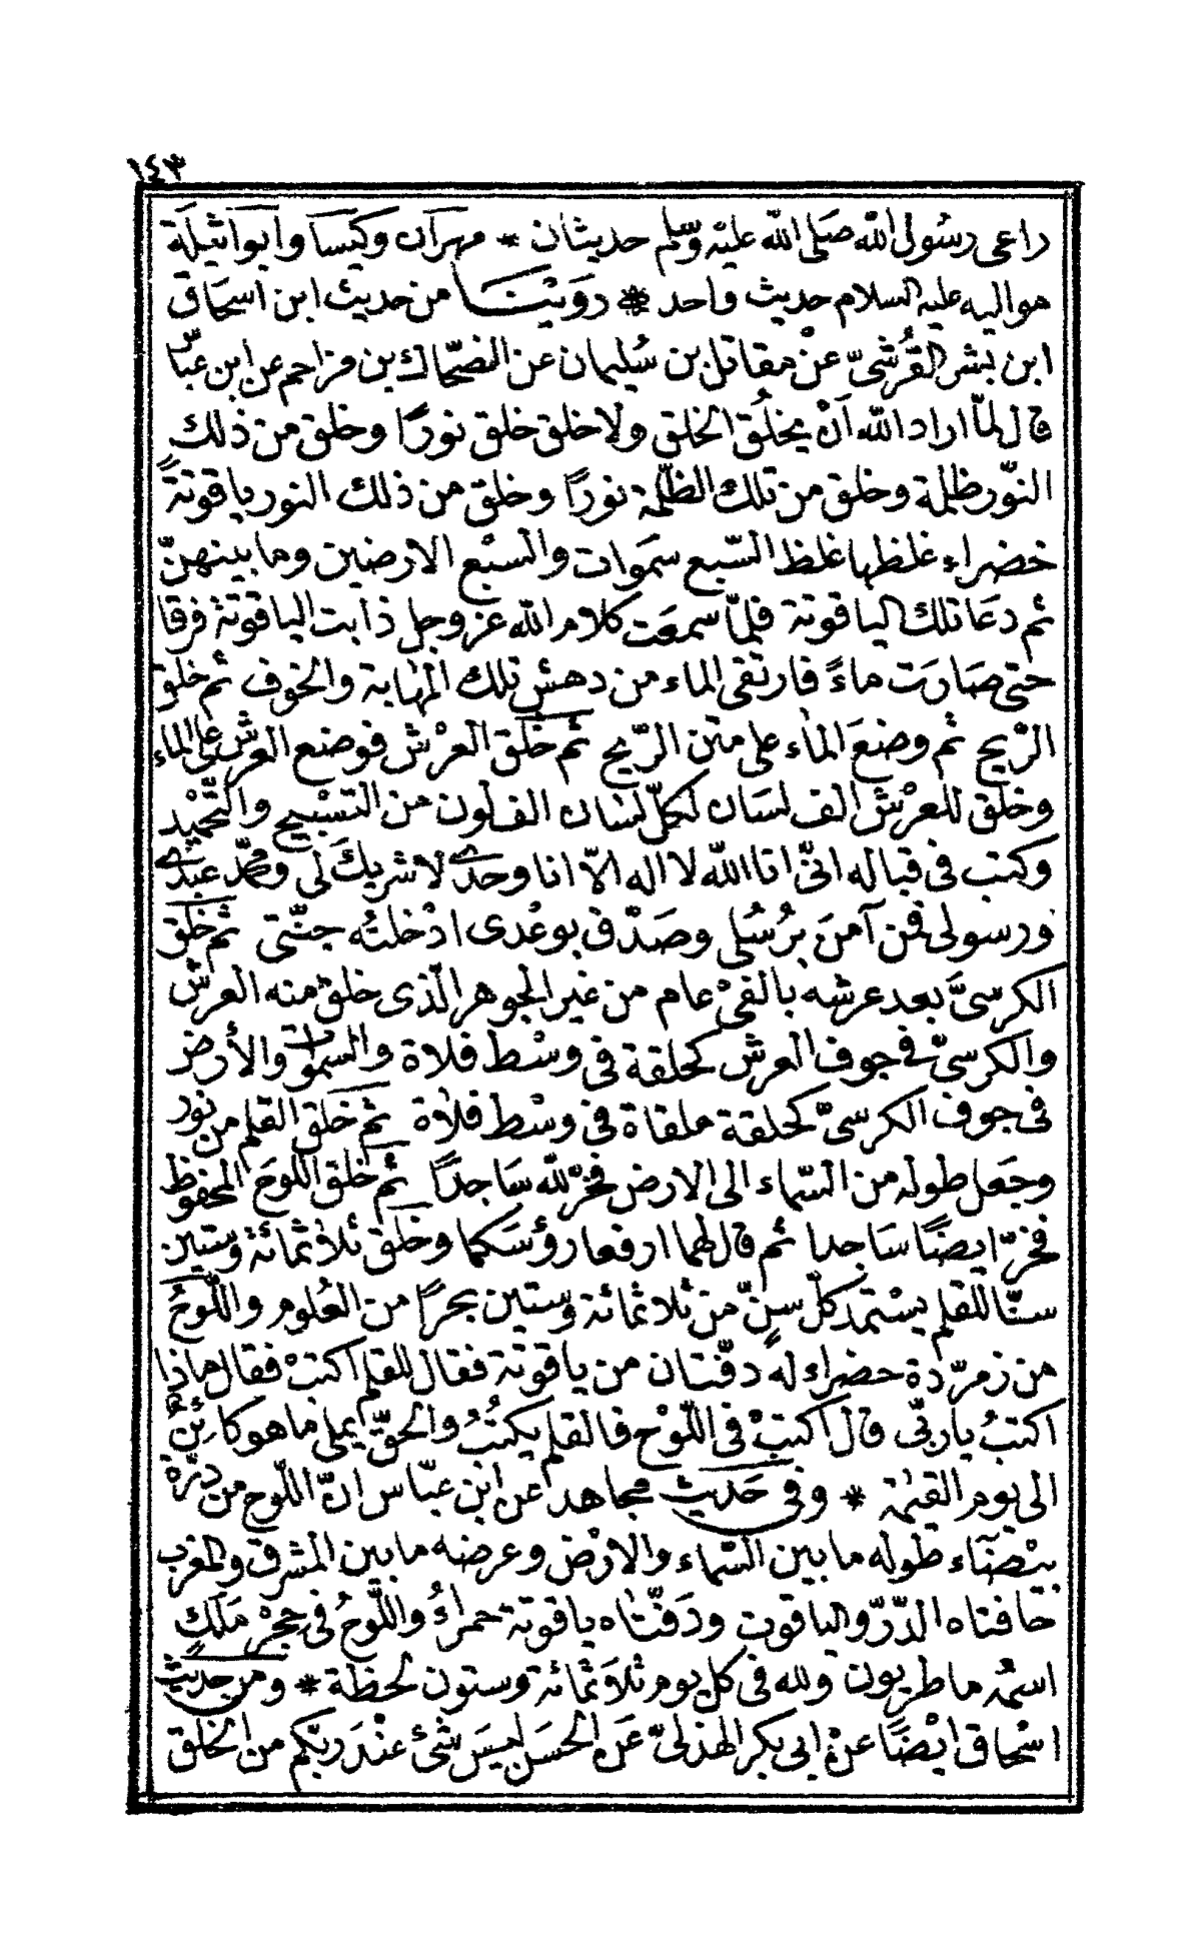 ١٤٣
راعى رسول الله صَلى الله عليْه وسّلم حديثان * مهرآن وكيسَا وأبوأثيلَة
مواليه عليه السلام حديث واحد * روَيْنَا من حديث ابن اسحاق
ابن بشر القُرشىّ عنْ مقاتل بن سُليمان عن الضحّاك بن مزاحم عن ابن عبّاس
قال لمّا اراد الله أنْ يخلُق الخلق ولا خلق خلق نورًا وخلق من ذلك
النّور ظلمة وخلق من تلك الظلّمة نورًا وخلق من ذلك النور ياقوتةً
خضراء غلظها غلظ السّبع سمَوات والسبْع الارضين وما بينهنّ
ثم دعَا تلك الياقوتة فلمّا سمعَت كلام الله عز وجل ذابت الياقوتة فرقا
حتى صَارَت ماءً فارتقى الماء من دهش تلك المهَابة والخوف ثم خلق
الرّيح ثم وضعَ الماء على متن الرّيح ثم خلق العرْش فوضع العرش على الماء
وخلق للعرْش الف لسَان لكلّ لسَان الف لون من التسْبيح والتّحْميْد
وكتب فى قباله انّى انا الله لا اله الاّ انا وحدى لا شريكَ لى ومحمّد عبْدى
ورسولى فمن آمنَ برُسُلى وصَدّق بوعْدى ادْخلتُه جنّتى ثم خلق
الكرسىَّ بعد عرشه بالفىْ عام من غير الجوهر الّذى خلق منه العرش
والكرسىّ فى جوف العرش كحلقة فى وسْط فلاة والسموات والأرض
فى جوف الكرسىّ كحلقة ملقاة فى وسْط فلاة ثم خلق القلم من نور
وجَعل طوله من السّماء الى الارض فخرّ لله سَاجدًا ثم خلق اللوحَ المحفوظ
فخرّ ايضًا سَاجدا ثم قال لهما ارفعا رؤسَكما وخلق ثلاثمائة وستين
سنّا للقلم يسْتمدّ كلّ سنٍّ من ثلاثمائة وستين بحرًا من العُلوم واللّوحُ
من زمرّدة خضراء له دفّتان من ياقوتة فقال للقلم اكتبْ فقال ماذا
اكتبُ يا ربّى قال اكتبْ فى اللّوْح فالقلم يكتُبُ والحقّ يملى ما هو كائنٌ
الى يوم القيٰمة * وفى حَديث مجاهد عن ابن عبّاس انّ اللّوح من درّة
بيْضَآء طوله ما بين السّماء والارْض وعرضه ما بين المشرق والمغرب
حافتاه الدّرّ والياقوت ودَفّتاه ياقوتة حمراءُ واللّوحُ فى حِجْر مَلَك
اسمُه ماطريون ولله فى كل يوم ثلاثمائة وستون لحظة * ومن حديث
اسْحاق ايْضًا عنْ ابى بكر الهذلىّ عَن الحسَن ليسَ شىْ عنْدَ ربّكم من الخلق